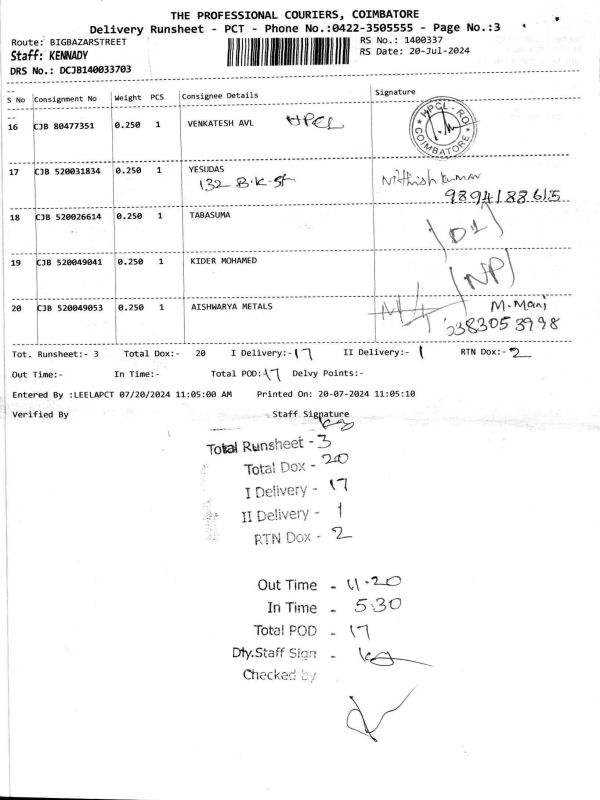 THE PROFESSIONAL COURIERS, COIMBATORE
Delivery Runsheet - PCT - Phone No.:0422-3505555 - Page No.:3
Route: BIGBAZARSTREET RS No.: 1400337
Staff: KENNADY RS Date: 20-Jul-2024
DRS No.: DCJB140033703
S No Consignment No Weight PCS Consignee Details Signature
16 CJB 80477351 0.250 1 VENKATESH AVL HPCL HPCL - RO COIMBATORE
17 CJB 520031834 0.250 1 YESUDAS Nithish kumar
132 B.K-St 9894188615
18 CJB 520026614 0.250 1 TABASUMA
19 CJB 520049041 0.250 1 KIDER MOHAMED NP
20 CJB 520049053 0.250 1 AISHWARYA METALS M. Mani
Tot. Runsheet:- 3 Total Dox:- 20 I Delivery:- 17 II Delivery:- 1 RTN Dox:- 2
Out Time:- In Time:- Total POD: 17 Delvy Points:-
Entered By :LEELAPCT 07/20/2024 11:05:00 AM Printed On: 20-07-2024 11:05:10
Verified By Staff Signature
Total Runsheet - 3
Total Dox - 20
I Delivery - 17
II Delivery - 1
RTN Dox - 2
Out Time - 11.20
In Time - 5.30
Total POD - 17
Dty.Staff Sign -
Checked by